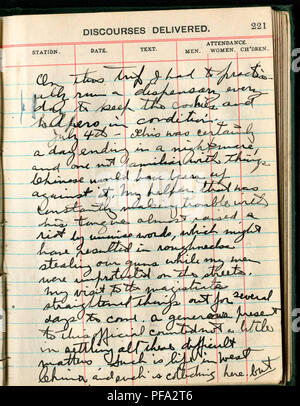 DISCOURSES DELIVERED.
221
STATION. DATE. TEXT. ATTENDANCE.
MEN. WOMEN. CH'DREN.
On this trip I had to practic-
ally run a dispensary every
day to keep the coolies and
helpers in condition.
July 4th - This was certainly
a day ending in a nightmare,
and one not familiar with things
Chinese would have been up
against it. My helper that was
constantly trouble with
his tongue almost raised a
riot by unwise words, which might
have resulted in roughnecks
stealing our guns while my men
were unprotected on the streets.
My visit to the magistrate
straightened things out for several
days to come. A generous present
to this official counted not a little
in settling all these difficult
matters. Such is life in west
China, and such is clutching here, but
alamy
Image ID: PFA2T6
www.alamy.com